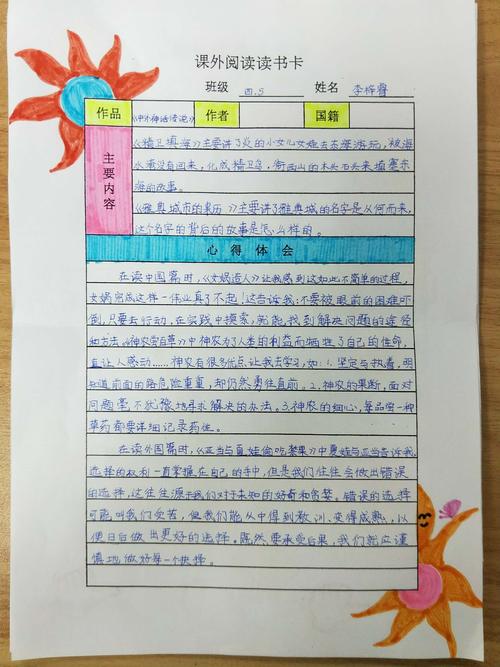 课外阅读读书卡
班级 四.5 姓名 李梓睿
作品 《中外神话传说》 作者 国籍
主要内容
《精卫填海》主要讲了炎的小女儿女娃去东海游玩,被海
水淹没回来,化成精卫鸟,衔西山的木头石头来填塞东
海的故事。
《雅典城市的来历》主要讲了雅典城的名字是从何而来,
这个名字的背后的故事是怎么样的。
心得体会
在读中国篇时,《女娲造人》让我感到这如此不简单的过程,
女娲完成这样一伟业真了不起!这告诉我:不要被眼前的困难吓
倒,只要去行动,在实践中摸索,就能找到解决问题的途径
和方法。《神农尝百草》中神农为了人类的利益而牺牲了自己的性命,
真让人感动……神农有很多优点让我去学习,如:1.坚定与执着,明
知道前面的路危险重重,却仍然勇往直前。2.神农的果断,面对
问题毫不犹豫地寻求解决的办法。3.神农的细心,每品尝一种
草药都要详细记录药性。
在读外国篇时,《亚当与夏娃偷吃禁果》中夏娃与亚当告诉我
选择的权利一直掌握在自己的手中,但是我们往往会做出错误
的选择,这往往源于我们对于未知的好奇和贪婪。错误的选择
可能叫我们受苦,但我们能从中得到教训、变得成熟,以
便日后做出更好的选择。既然要承受后果,我们就应谨
慎地做好每一个抉择。